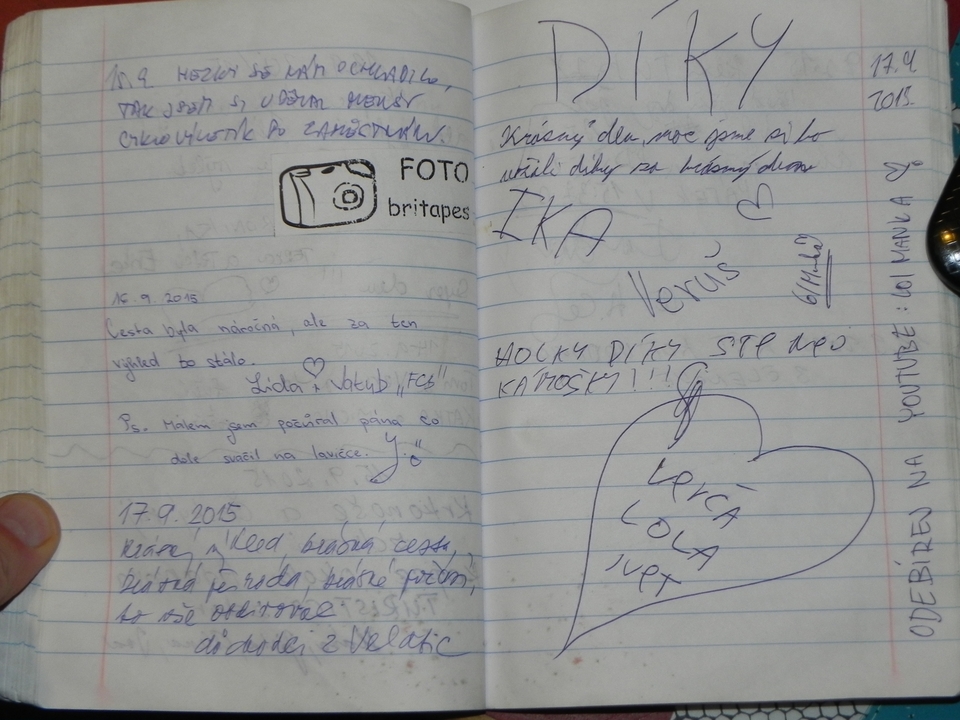 15.9. HEZKY SE NÁM OCHLADILO,
TAK JSEM SI UDĚLAL MENŠÍ
CYKLOVÝLETÍK PO ZAMĚSTNÁNÍ.
FOTO
britapes
16.9.2015
Cesta byla náročná, ale za ten
výhled to stálo.
Lída + Jakub "FCB"
Ps. Málem jsem počůral pána co
dole svačil na lavičce.
17.9.2015
Krásný výhled, krásná cesta,
krásná příroda, krásné počasí,
to vše
důchodci z Velatic
DÍKY
17.9
2015.
Krásný den, moc jsme si ho
užili díky za krásný den
IKA
Veruš
HOLKY DÍKY STE MEÓ
KÁMOŠKY!!!
LERČA
LOLA
IVET
ODEBÍREJ NA YOUTUBE: LOLMANKA